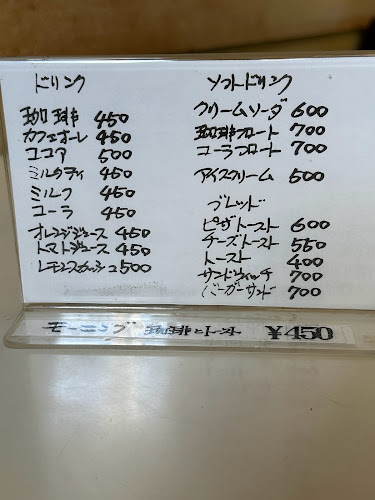 ドリンク
珈琲 450
カフェオーレ 450
ココア 500
ミルクティ 450
ミルク 450
コーラ 450
オレンジジュース 450
トマトジュース 450
レモンスカッシュ 500
ソフトドリンク
クリームソーダ 600
珈琲フロート 700
コーラフロート 700
アイスクリーム 500
ブレッド
ピザトースト 600
チーズトースト 550
トースト 400
サンドウィッチ 700
バーガーサンド 700
モーニング 珈琲とトースト ¥450